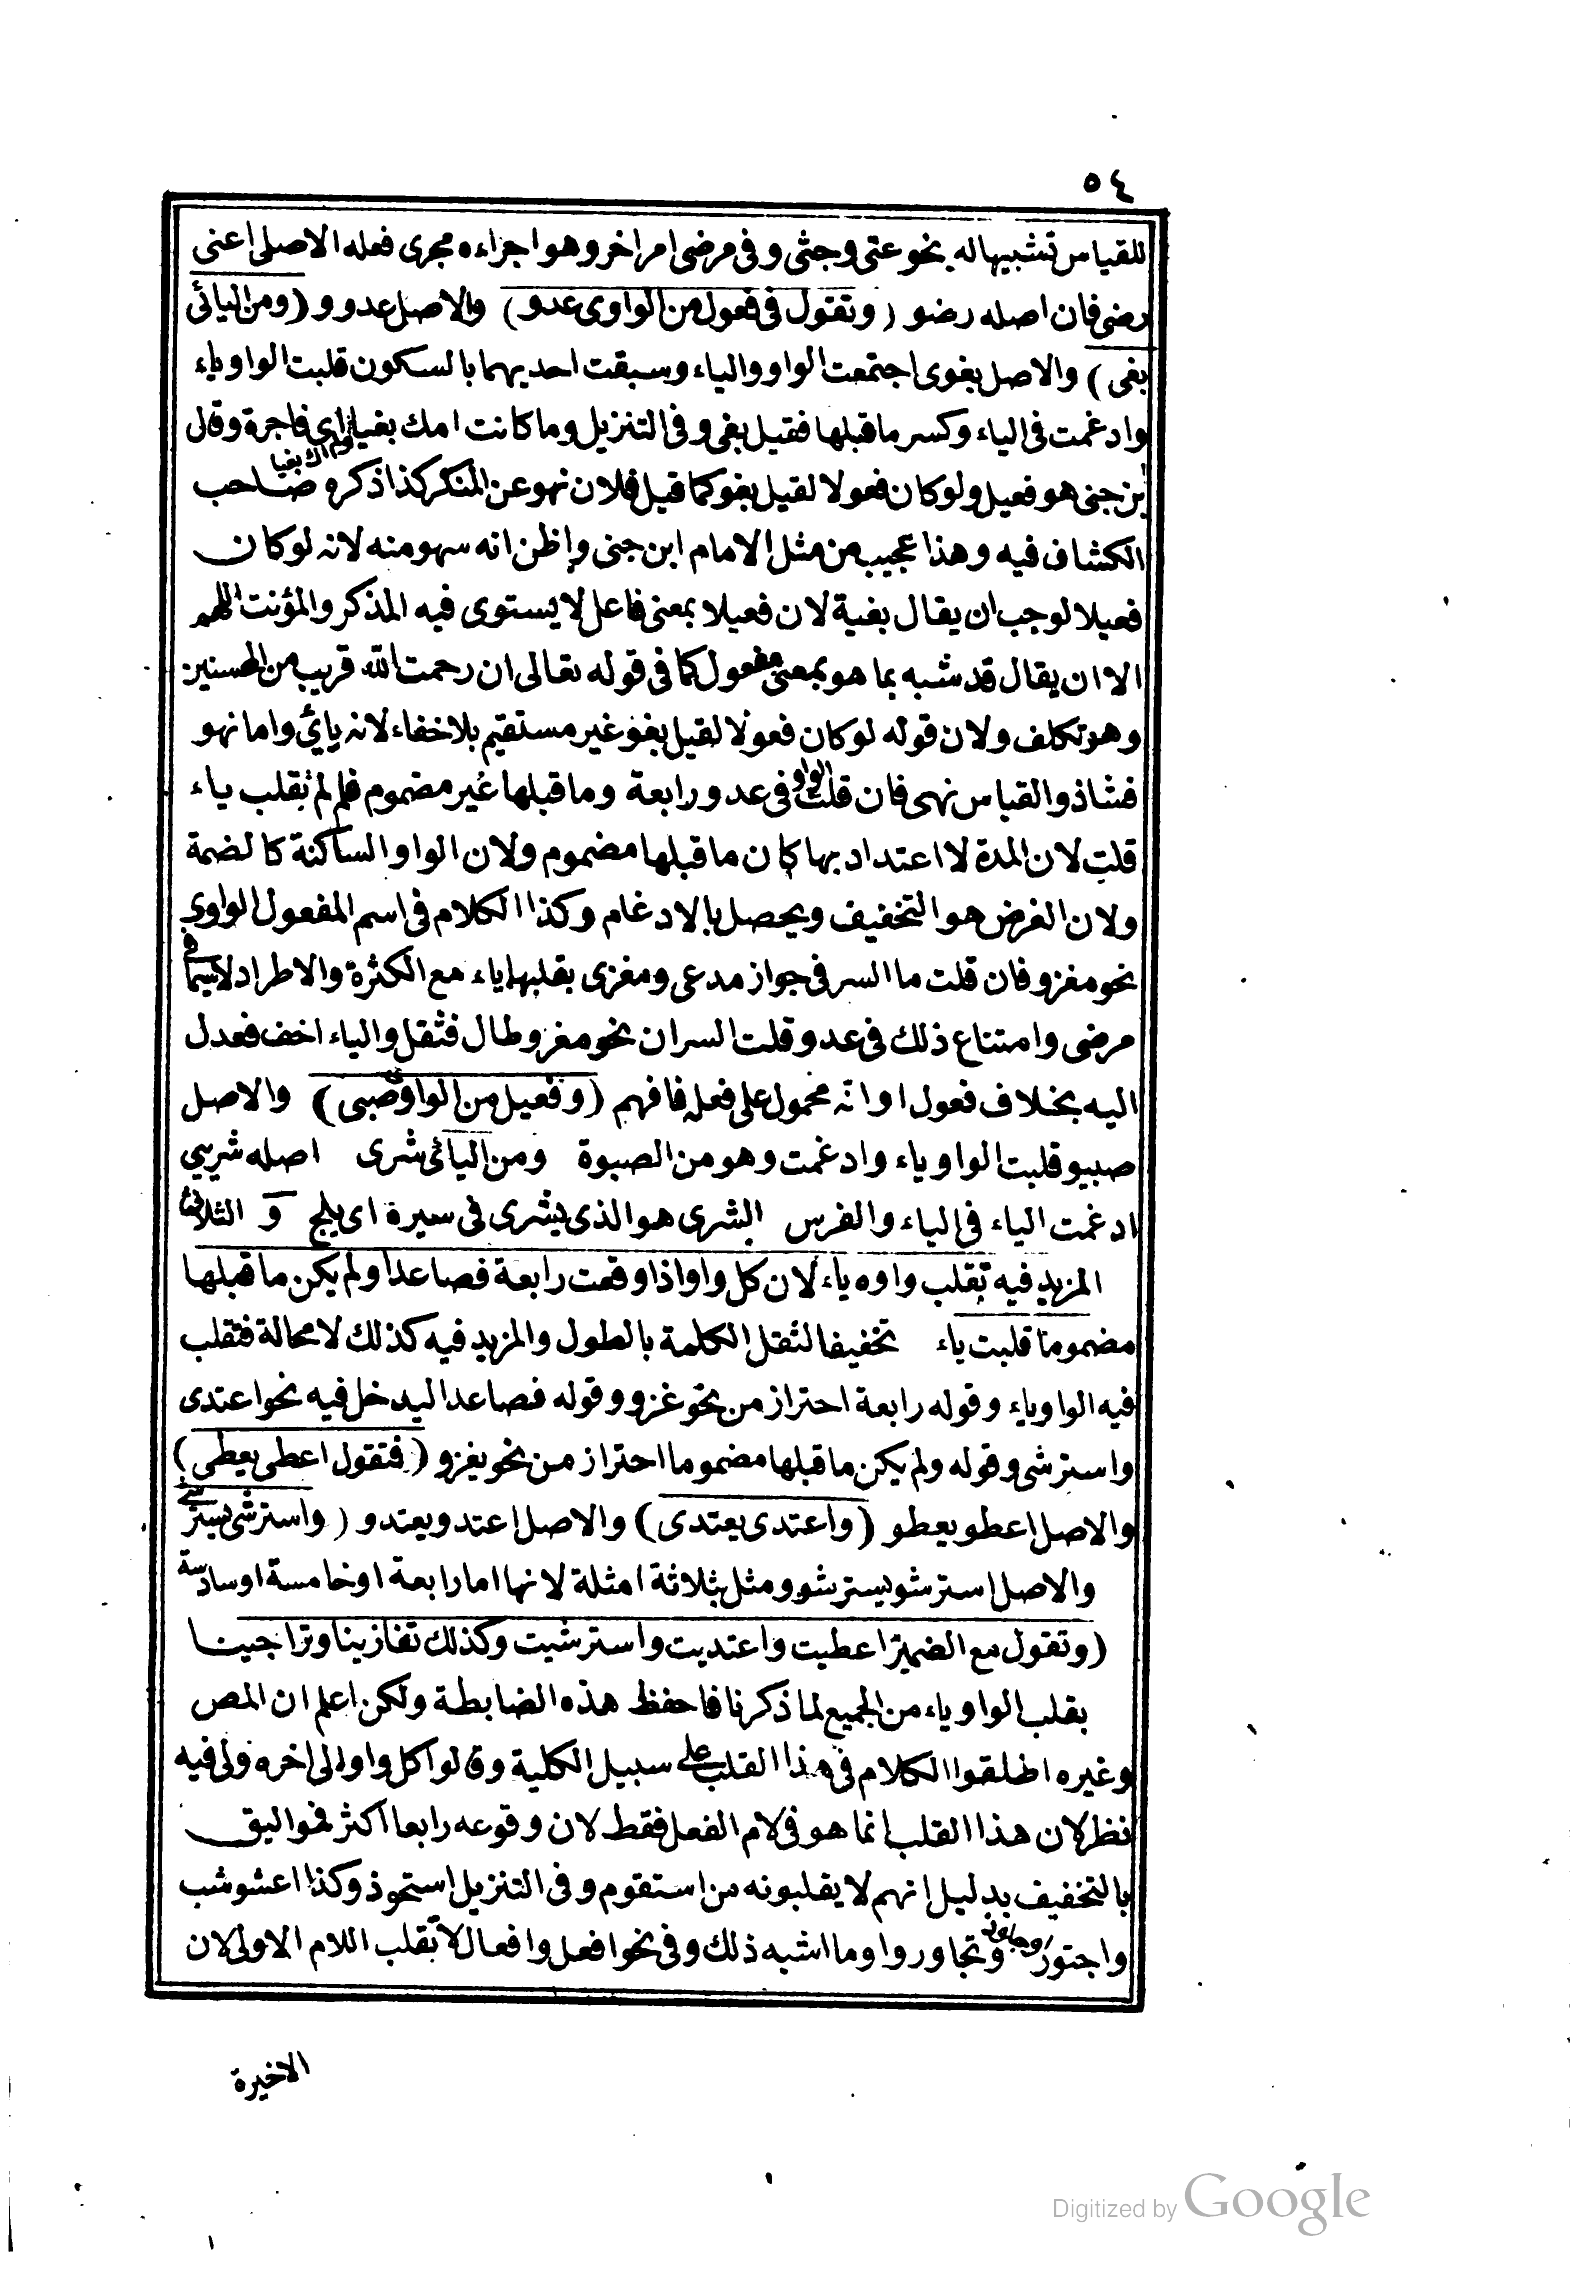 ٥٤
للقياس تشبيها له بنحو عتى وجثى وفى مرضى امر اخر وهو اجراءه مجرى فعله الاصلى اعنى
رضى فان اصله رضو ( وتقول فى فعول من الواوى عدو ) والاصل عدوو ( ومن اليائى
بغى ) والاصل بغوى اجتمعت الواو والياء وسبقت احديهما بالسكون قلبت الواو ياء
وادغمت فى الياء وكسر ما قبلها فقيل بغى وفى التنزيل وما كانت امك بغيا اى فاجرة وقال
ولم اك بغيا
ابن جنى هو فعيل ولو كان فعولا لقيل بغو كما قيل فلان نهو عن المنكر كذا ذكره صاحب
الكشاف فيه وهذا عجيب من مثل الامام ابن جنى واظن انه سهو منه لانه لو كان
فعيلا لوجب ان يقال بغية لان فعيلا بمعنى فاعل لا يستوى فيه المذكر والمؤنت اللهم
الا ان يقال قد شبه بما هو بمعنى مفعول كما فى قوله تعالى ان رحمت الله قريب من المحسنين
وهو تكلف ولان قوله لو كان فعولا لقيل بغو غير مستقيم بلاخفاء لانه يائى واما نهو
فشاذ والقياس نهى فان قلت الواو فى عدو رابعة وما قبلها غير مضموم فلم لم تقلب ياء
قلت لان المدة لا اعتداد بها كان ما قبلها مضموم ولان الواو الساكنة كالضمة
ولان الغرض هو التخفيف ويحصل بالادغام وكذا الكلام فى اسم المفعول الواوى
نحو مغزو فان قلت ما السر فى جواز مدعى ومغزى بقلبها ياء مع الكثرة والاطراد لاسيما فى
مرضى وامتناع ذلك فى عدو قلت السر ان نحو مغزو طال فثقل والياء اخف فعدل
اليه بخلاف فعول او انه محمول على فعله فافهم ( وفعيل من الواوى صبى ) والاصل
صبيو قلبت الواو ياء وادغمت وهو من الصبوة ومن اليائى شرى اصله شريي
ادغمت الياء فى الياء والفرس الشرى هو الذى يشرى فى سيره اى يلج و الثلاثى
المزيد فيه تقلب واوه ياء لان كل واو اذا وقعت رابعة فصاعدا ولم يكن ما قبلها
مضموما قلبت ياء تخفيفا لثقل الكلمة بالطول والمزيد فيه كذلك لا محالة فتقلب
فيه الواو ياء وقوله رابعة احتراز من نحو غزو وقوله فصاعدا ليدخل فيه نحو اعتدى
واسترشى وقوله ولم يكن ما قبلها مضموما احتراز من نحو يغزو ( فتقول اعطى يعطى )
والاصل اعطو يعطو ( واعتدى يعتدى ) والاصل اعتدو يعتدو ( واسترشى يسترشى
والاصل استرشو يسترشو ومثل بثلاثة امثلة لانها اما رابعة او خامسة او سادسة
( وتقول مع الضمير اعطيت واعتديت واسترشيت وكذلك تغازينا وتراجينا
بقلب الواو ياء من الجميع لما ذكرنا فاحفظ هذه الضابطة ولكن اعلم ان المص
وغيره اطلقوا الكلام فى هذا القلب على سبيل الكلية وقالوا كل واو الى اخره ولى فيه
نظر لان هذا القلب انما هو فى لام الفعل فقط لان وقوعه رابعا اكثر فهو اليق
بالتخفيف بدليل انهم لا يقلبونه من استقوم وفى التنزيل استحوذ وكذا اعشوشب
واجتور وتجاوروا وما اشبه ذلك وفى نحو افعل وافعال لا تقلب اللام الاولى لان
الاخيرة
Digitized by Google